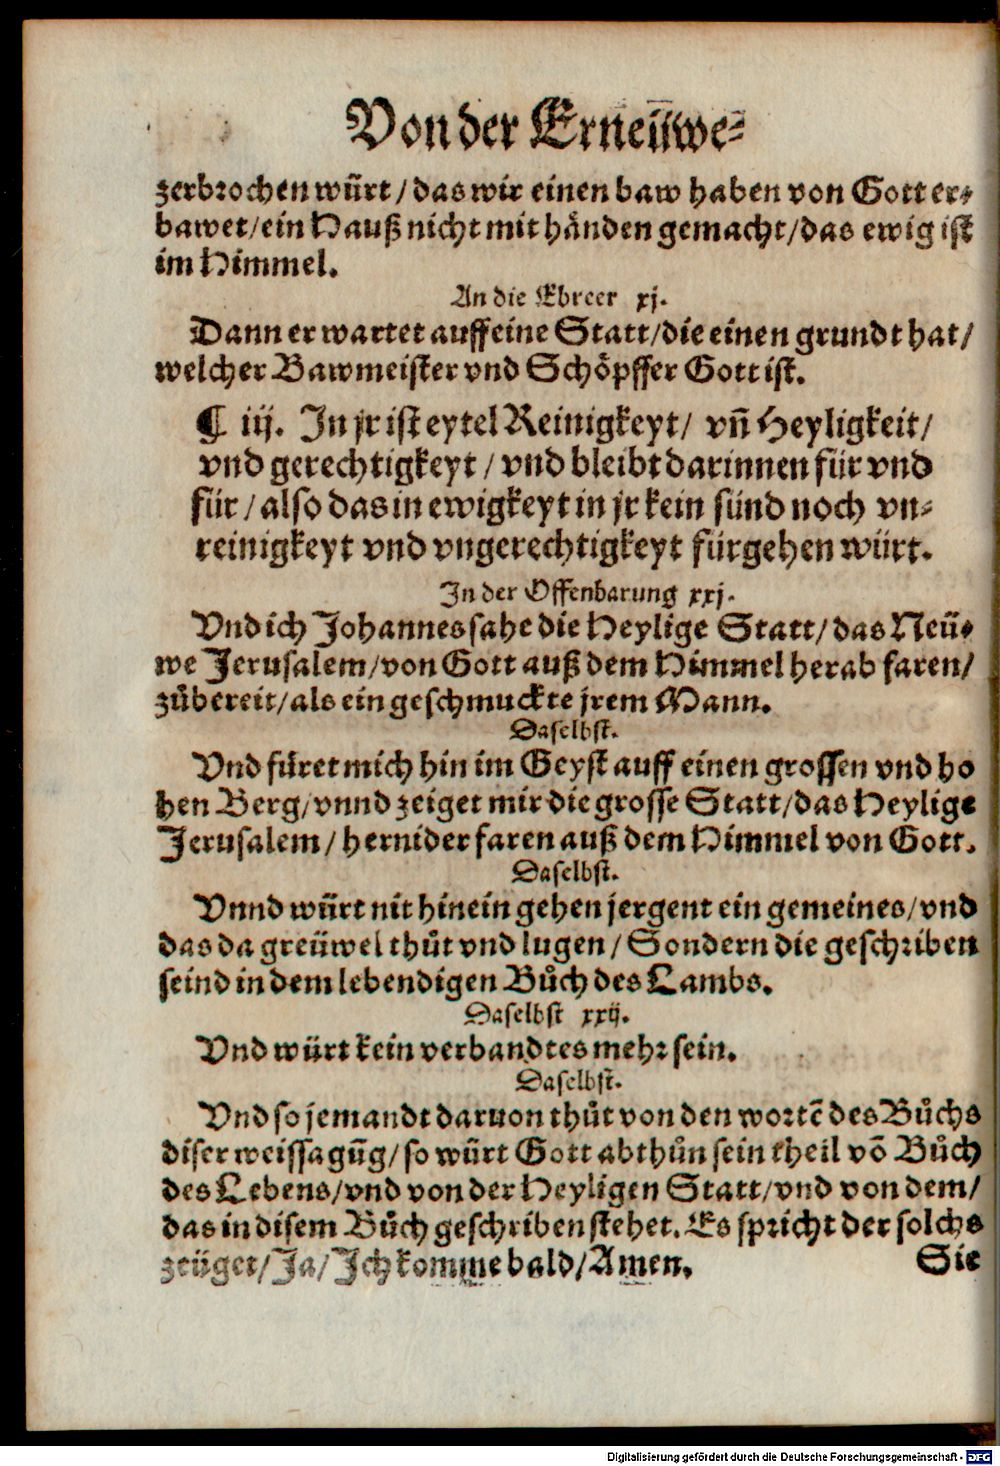 Von der Erneüwe-
zerbrochen würt / das wir einen baw haben von Gott er-
bawet/ein Hauß nicht mit händen gemacht/das ewig ist
im Himmel.
An die Ebreer xj.
Dann er wartet auff eine Statt/die einen grundt hat/
welcher Bawmeister vnd Schöpffer Gott ist.
¶ iij. In jr ist eytel Reinigkeyt/ vñ Heyligkeit/
vnd gerechtigkeyt / vnd bleibt darinnen für vnd
für / also das in ewigkeyt in jr kein sünd noch vn-
reinigkeyt vnd vngerechtigkeyt fürgehen würt.
In der Offenbarung xxj.
Vnd ich Johannes sahe die Heylige Statt/das Neü-
we Jerusalem/von Gott auß dem Himmel herab faren/
zůbereit/als ein geschmuckte jrem Mann.
Daselbst.
Vnd füret mich hin im Geyst auff einen grossen vnd ho
hen Berg/vnnd zeiget mir die grosse Statt/das Heylige
Jerusalem / hernider faren auß dem Himmel von Gott.
Daselbst.
Vnnd würt nit hinein gehen jergent ein gemeines/vnd
das da greüwel thůt vnd lugen / Sondern die geschriben
seind in dem lebendigen Bůch des Lambs.
Daselbst xxij.
Vnd würt kein verbandtes mehr sein.
Daselbst.
Vnd so jemandt daruon thůt von den wortẽ des Bůchs
diser weissagũg/so würt Gott abthůn sein theil võ Bůch
des Lebens/vnd von der Heyligen Statt/vnd von dem/
das in disem Bůch geschriben stehet. Es spricht der solchs
zeüget/Ja/Ich komme bald/Amen. Sie
Digitalisierung gefördert durch die Deutsche Forschungsgemeinschaft - DFG